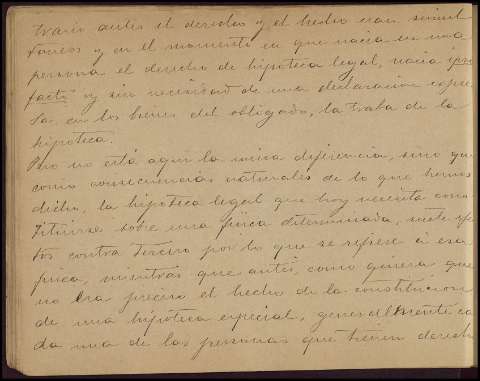 trario antes el derecho y el hecho eran simul
táneos y en el momento en que nacia en una
persona el derecho de hipoteca legal, nacia ipso
facto y sin necesidad de una declaracion expre
sa, en los bienes del obligado, la traba de la
hipoteca.
Pero no está aqui la unica diferencia, sino que
como consecuencias naturales de lo que hemos
dicho, la hipoteca legal que hoy necesita cons
tituirse sobre una finca determinada, surte efec
tos contra tercero por lo que se refiere á esa
finca, mientras que antes, como quiera que
no era preciso el hecho de la constitucion
de una hipoteca especial, generalmente ca
da una de las personas que tienen derecho